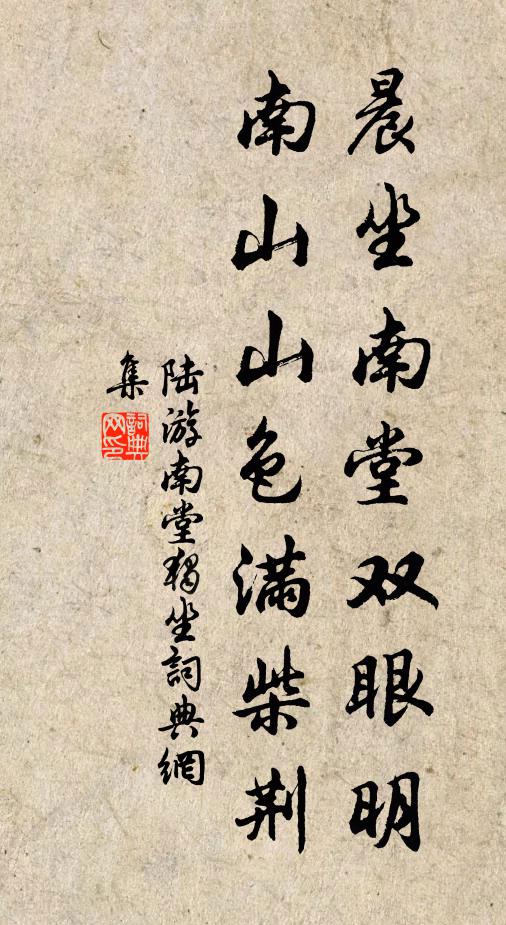 晨坐南堂双眼明
南山山色满柴荆
陆游南堂独坐詞典網
集
詞典
网印